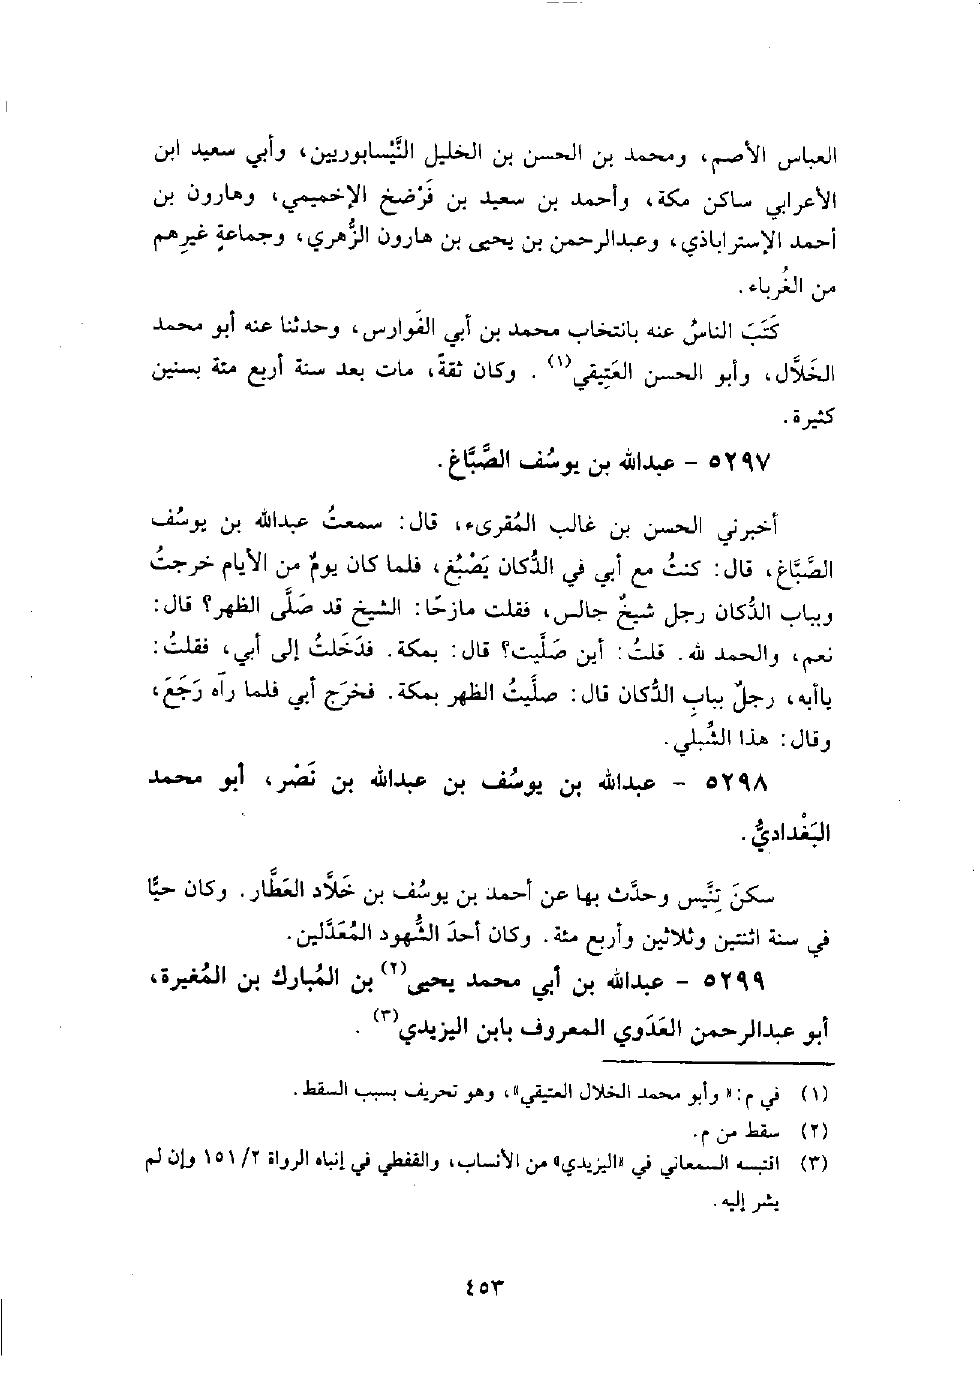 العباس الأصم، ومحمد بن الحسن بن الخليل النَّيْسابوريين، وأبي سعيد ابن
الأعرابي ساكن مكة، وأحمد بن سعيد بن فَرْضخ الإخميمي، وهارون بن
أحمد الإستراباذي، وعبدالرحمن بن يحيى بن هارون الزُّهري، وجماعةٍ غيرِهم
من الغُرباء.
كَتَبَ الناسُ عنه بانتخاب محمد بن أبي الفَوارس، وحدثنا عنه أبو محمد
الخَلَّال، وأبو الحسن العَتِيقي(١). وكان ثقةً، مات بعد سنة أربع مئة بسنين
كثيرة.
٥٢٩٧ - عبدالله بن يوسُف الصَّبَّاغ.
أخبرني الحسن بن غالب المُقرىء، قال: سمعتُ عبدالله بن يوسُف
الصَّبَّاغ، قال: كنتُ مع أبي في الدُّكان يَصْبُغ، فلما كان يومٌ من الأيام خرجتُ
وبباب الدُّكان رجل شيخٌ جالس، فقلت مازحًا: الشيخ قد صَلَّى الظهر؟ قال:
نعم، والحمد لله. قلتُ: أين صَلَّيت؟ قال: بمكة. فدَخَلتُ إلى أبي، فقلتُ:
ياأبه، رجلٌ ببابِ الدُّكان قال: صلَّيتُ الظهر بمكة. فخرَج أبي فلما رآه رَجَعَ،
وقال: هذا الشِّبلي.
٥٢٩٨ - عبدالله بن يوسُف بن عبدالله بن نَصْر، أبو محمد
البَغْداديُّ.
سكنَ تِنِّيس وحدَّث بها عن أحمد بن يوسُف بن خَلَّاد العَطَّار. وكان حيًّا
في سنة اثنتين وثلاثين وأربع مئة. وكان أحدَ الشُّهود المُعَدَّلين.
٥٢٩٩ - عبدالله بن أبي محمد يحيى(٢) بن المُبارك بن المُغيرة،
أبو عبدالرحمن العَدَوي المعروف بابن اليزيدي(٣).
(١) في م: «وأبو محمد الخلال العتيقي»، وهو تحريف بسبب السقط.
(٢) سقط من م.
(٣) اقتبسه السمعاني في «اليزيدي» من الأنساب، والقفطي في إنباه الرواة ٢/ ١٥١ وإن لم
يشر إليه.
٤٥٣